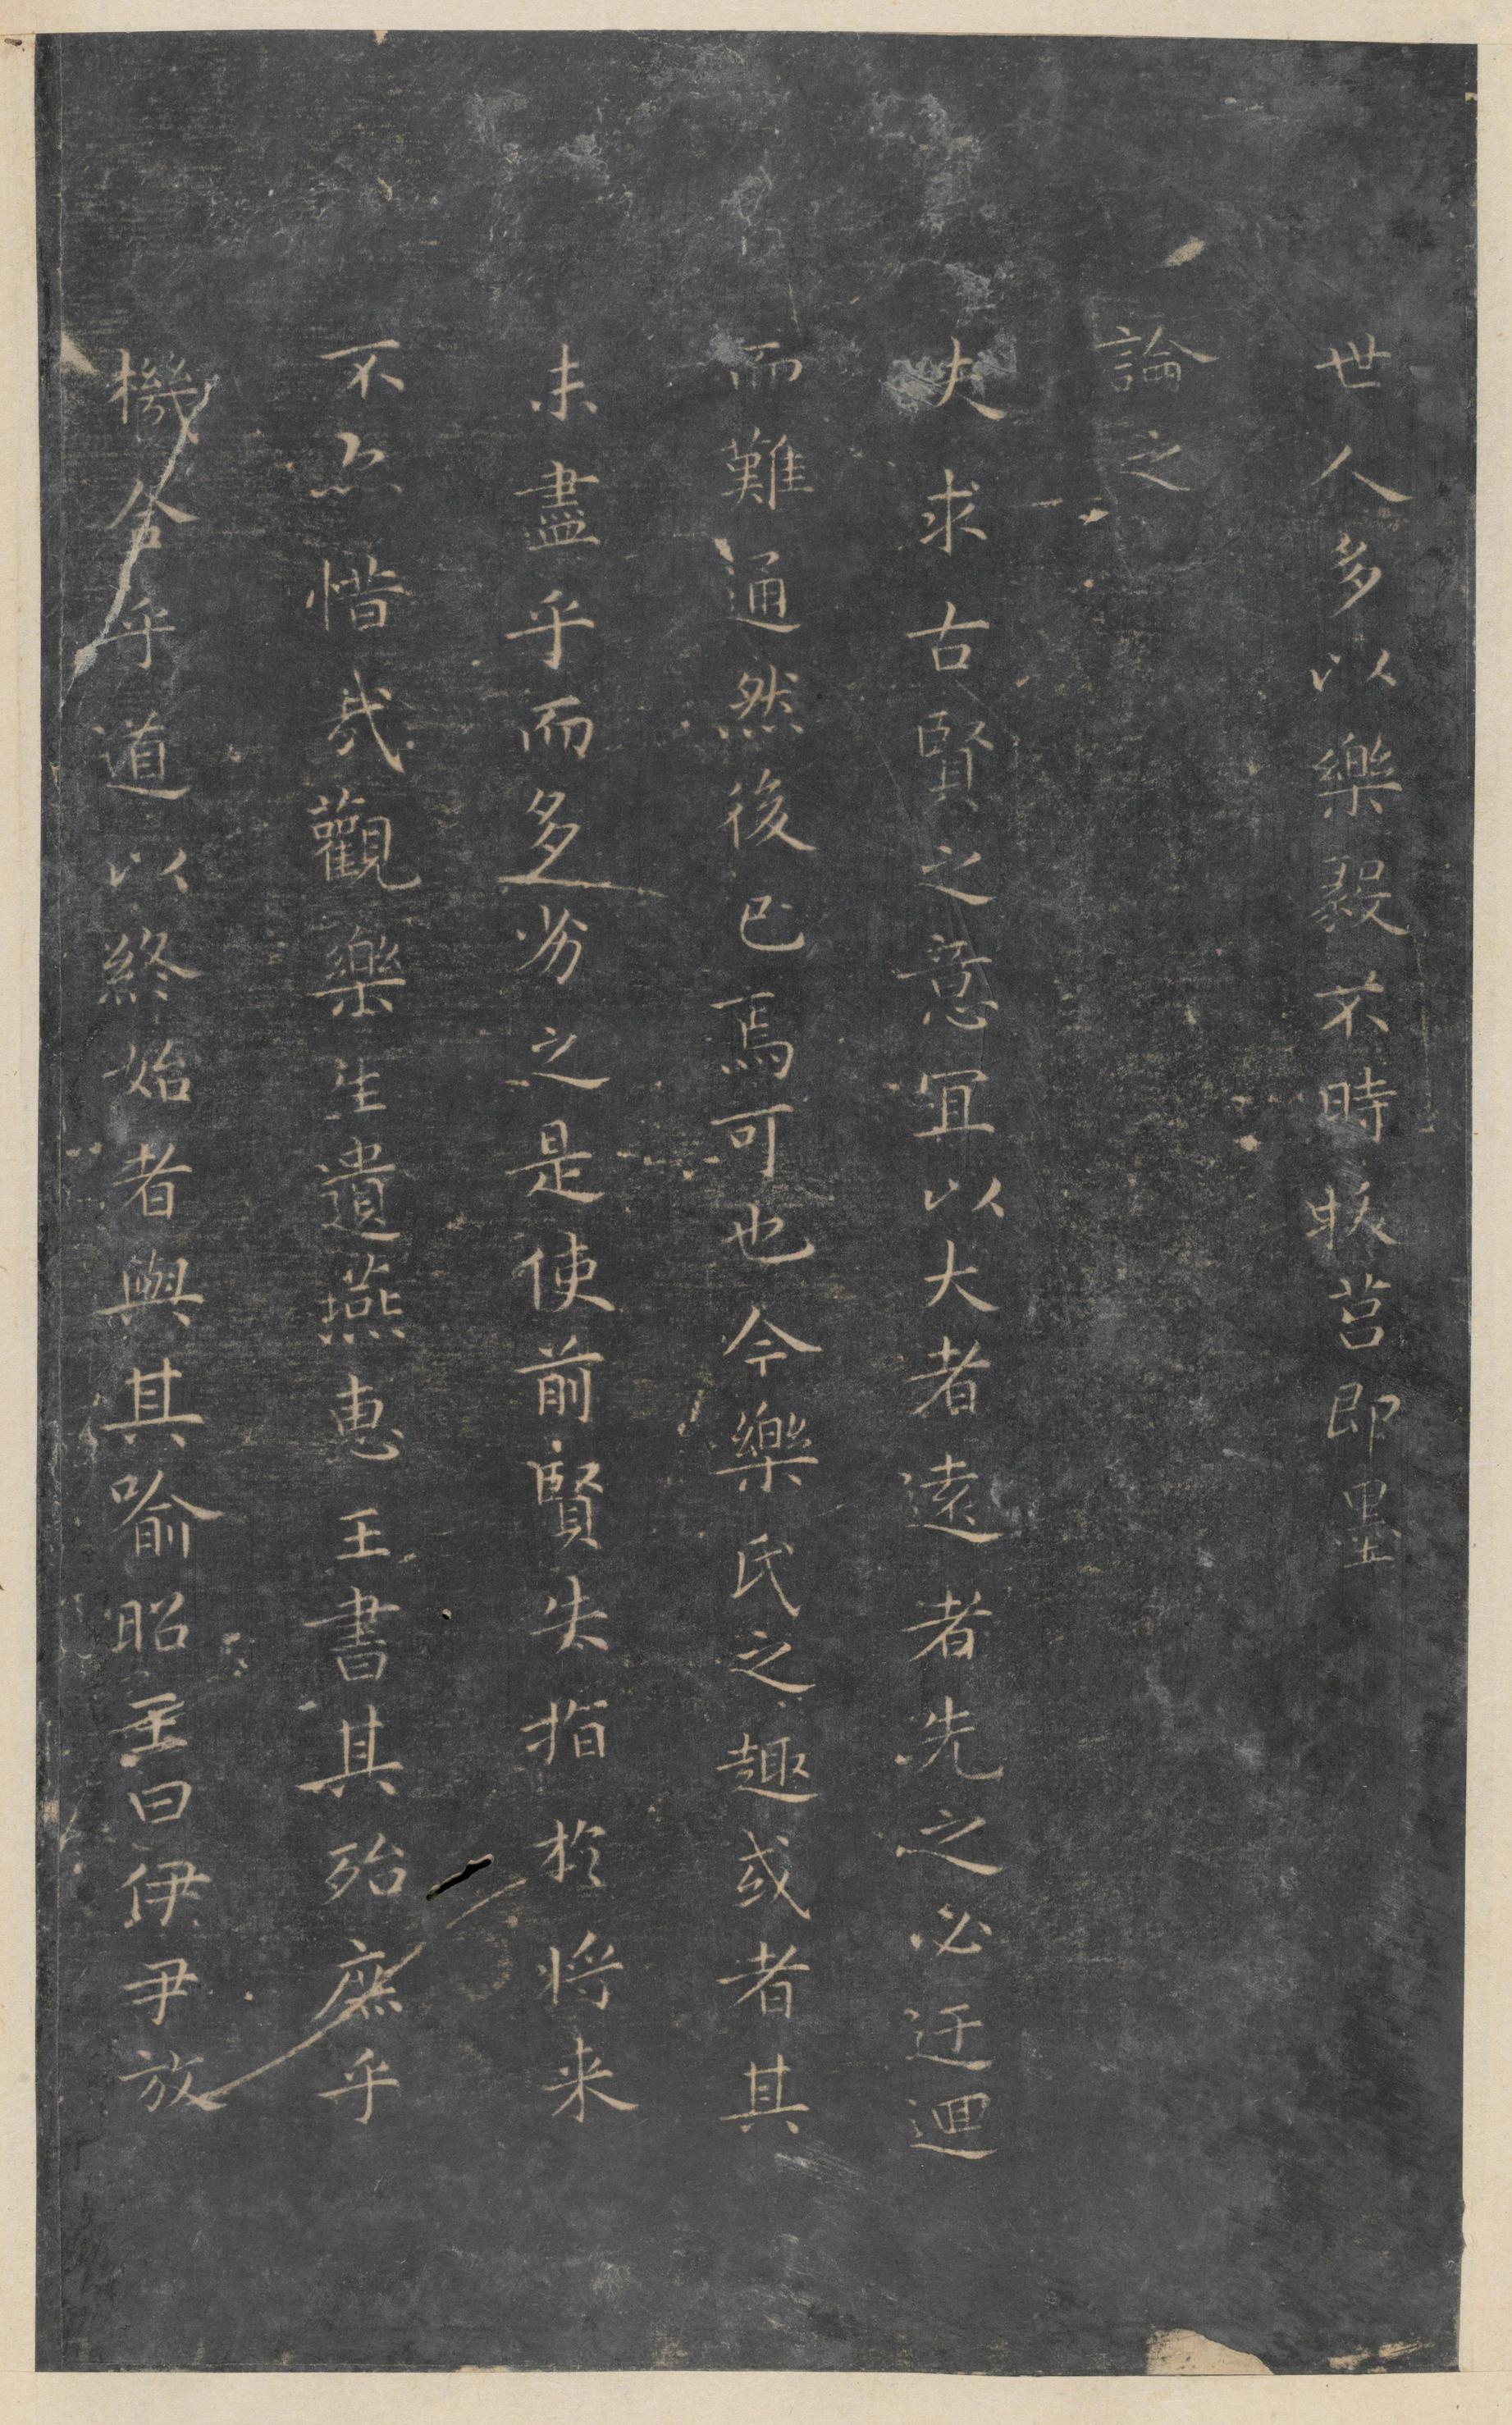 世人多以樂毅不時拔莒即墨
論之
夫求古賢之意宜以大者遠者先之必迂迴
而難通然後已焉可也今樂氏之趣或者其
未盡乎而多劣之是使前賢失指於将来
不亦惜哉觀樂生遺燕惠王書其殆庶乎
機合乎道以終始者與其喻昭王曰伊尹放